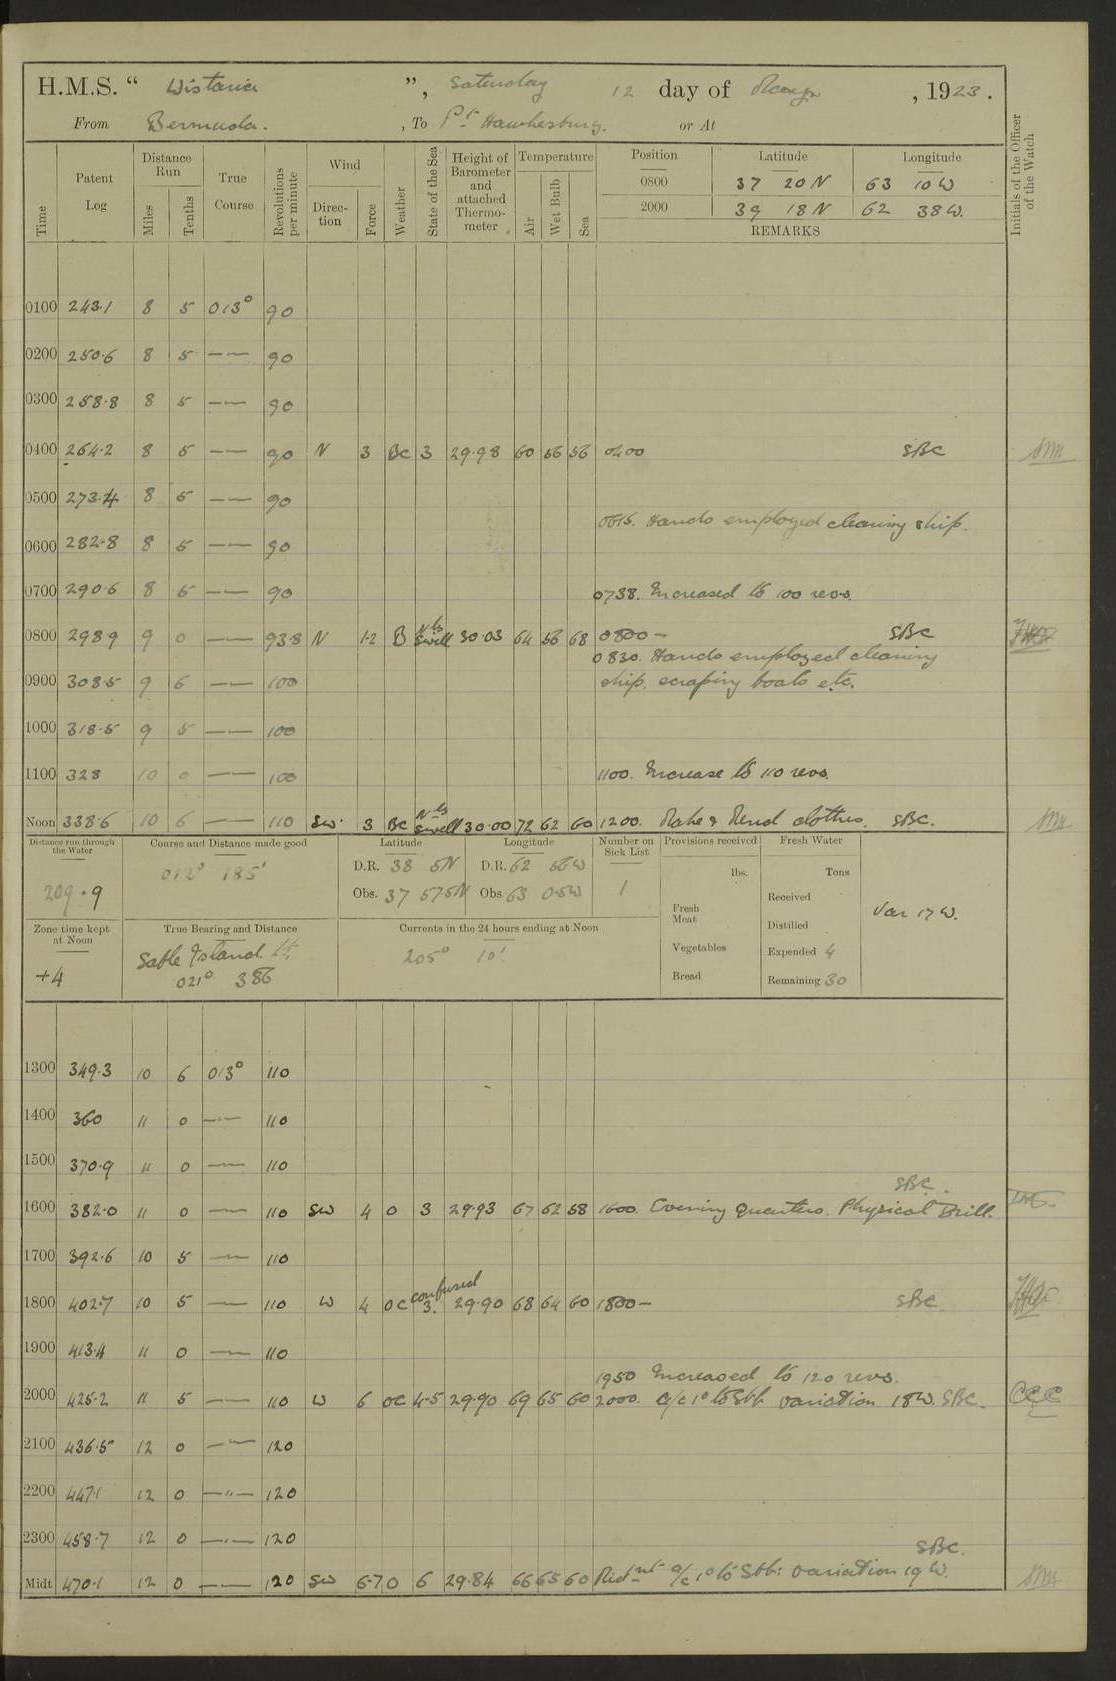 H.M.S. " Wistaria ", Saturday 12 day of , 1923.
From Bermuda. , To Pt Hawkesbury. or At
Time Patent Log Distance Run Miles Tenths True Course Revolutions per minute Wind Direction Force Weather State of the Sea Height of Barometer and attached Thermometer Temperature Air Wet Bulb Sea Position Latitude Longitude REMARKS Initials of the Officer of the Watch
0800 37 20 N 63 10 W
2000 39 18 N 62 38 W.
0100 243.1 8 5 013° 90
0200 250.6 8 5 —"— 90
0300 258.8 8 5 —"— 90
0400 264.2 8 5 —"— 90 N 3 Bc 3 29.98 60 56 56 0400 SBC
0500 273.4 8 5 —"— 90
0515. Hands employed cleaning ship.
0600 282.8 8 5 —"— 90
0700 290.6 8 5 —"— 90 0738. Increased to 100 revs.
0800 298.9 9 0 —"— 93.8 N 1-2 B Nly Swell 30.03 64 56 68 0800 — SBC
0830. Hands employed cleaning
0900 308.5 9 6 —"— 100 ship, scraping boats etc.
1000 318.5 9 5 —"— 100
1100 328 10 0 —"— 100 1100. Increase to 110 revs.
Noon 338.6 10 6 —"— 110 SW. 3 Bc Nly Swell 30.00 72 62 60 1200. Make & Mend clothes. SBC.
Distance run through the Water 209.9
Course and Distance made good 012° 185'
Latitude D.R. 38 5N Obs. 37 57.5N
Longitude D.R. 62 56W Obs 63 0.5W
Number on Sick List 1
Provisions received lbs. Fresh Meat Vegetables Bread
Fresh Water Tons Received Distilled Expended 4 Remaining 30
Var 17 W.
Zone time kept at Noon +4
True Bearing and Distance Sable Island Lt. 021° 386
Currents in the 24 hours ending at Noon 205° 10'
1300 349.3 10 6 013° 110
1400 360 11 0 —"— 110
1500 370.9 11 0 —"— 110
SBC.
1600 382.0 11 0 —"— 110 SW 4 O 3 29.93 67 62 58 1600. Evening Quarters. Physical Drill.
1700 392.6 10 5 —"— 110
1800 402.7 10 5 —"— 110 W 4 OC confused 3. 29.90 68 64 60 1800 — SBC
1900 413.4 11 0 —"— 110
1950 Increased to 120 revs.
2000 425.2 11 5 —"— 110 W 6 OC 4-5 29.90 69 65 60 2000. a/c 1° to Stb. variation 18 W. SBC. CCC
2100 436.5 12 0 —"— 120
2200 447.1 12 0 —"— 120
2300 458.7 12 0 —"— 120
SBC.
Midt 470.1 12 0 —"— 120 SW 6-7 O 6 29.84 66 65 60 Midnt a/c 1° to Stb: variation 19 W.